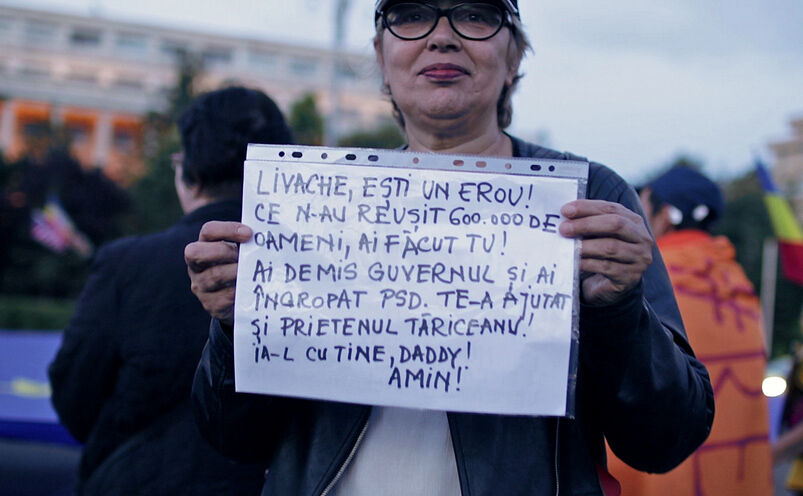 LIVACHE, EȘTI UN EROU!
CE N-AU REUȘIT 600.000 DE
OAMENI, AI FĂCUT TU!
AI DEMIS GUVERNUL ȘI AI
ÎNGROPAT PSD. TE-A AJUTAT
ȘI PRIETENUL TĂRICEANU!
IA-L CU TINE, DADDY!
AMIN!